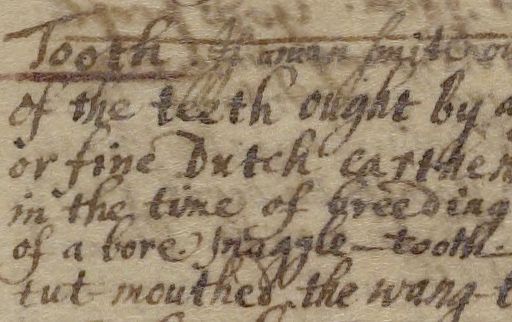 Tooth. If a man smite ou
of the teeth ought by a
or fine Dutch earthen
in the time of breeding
of a bore, snaggle-tooth.
tut mouthed, the wang-t